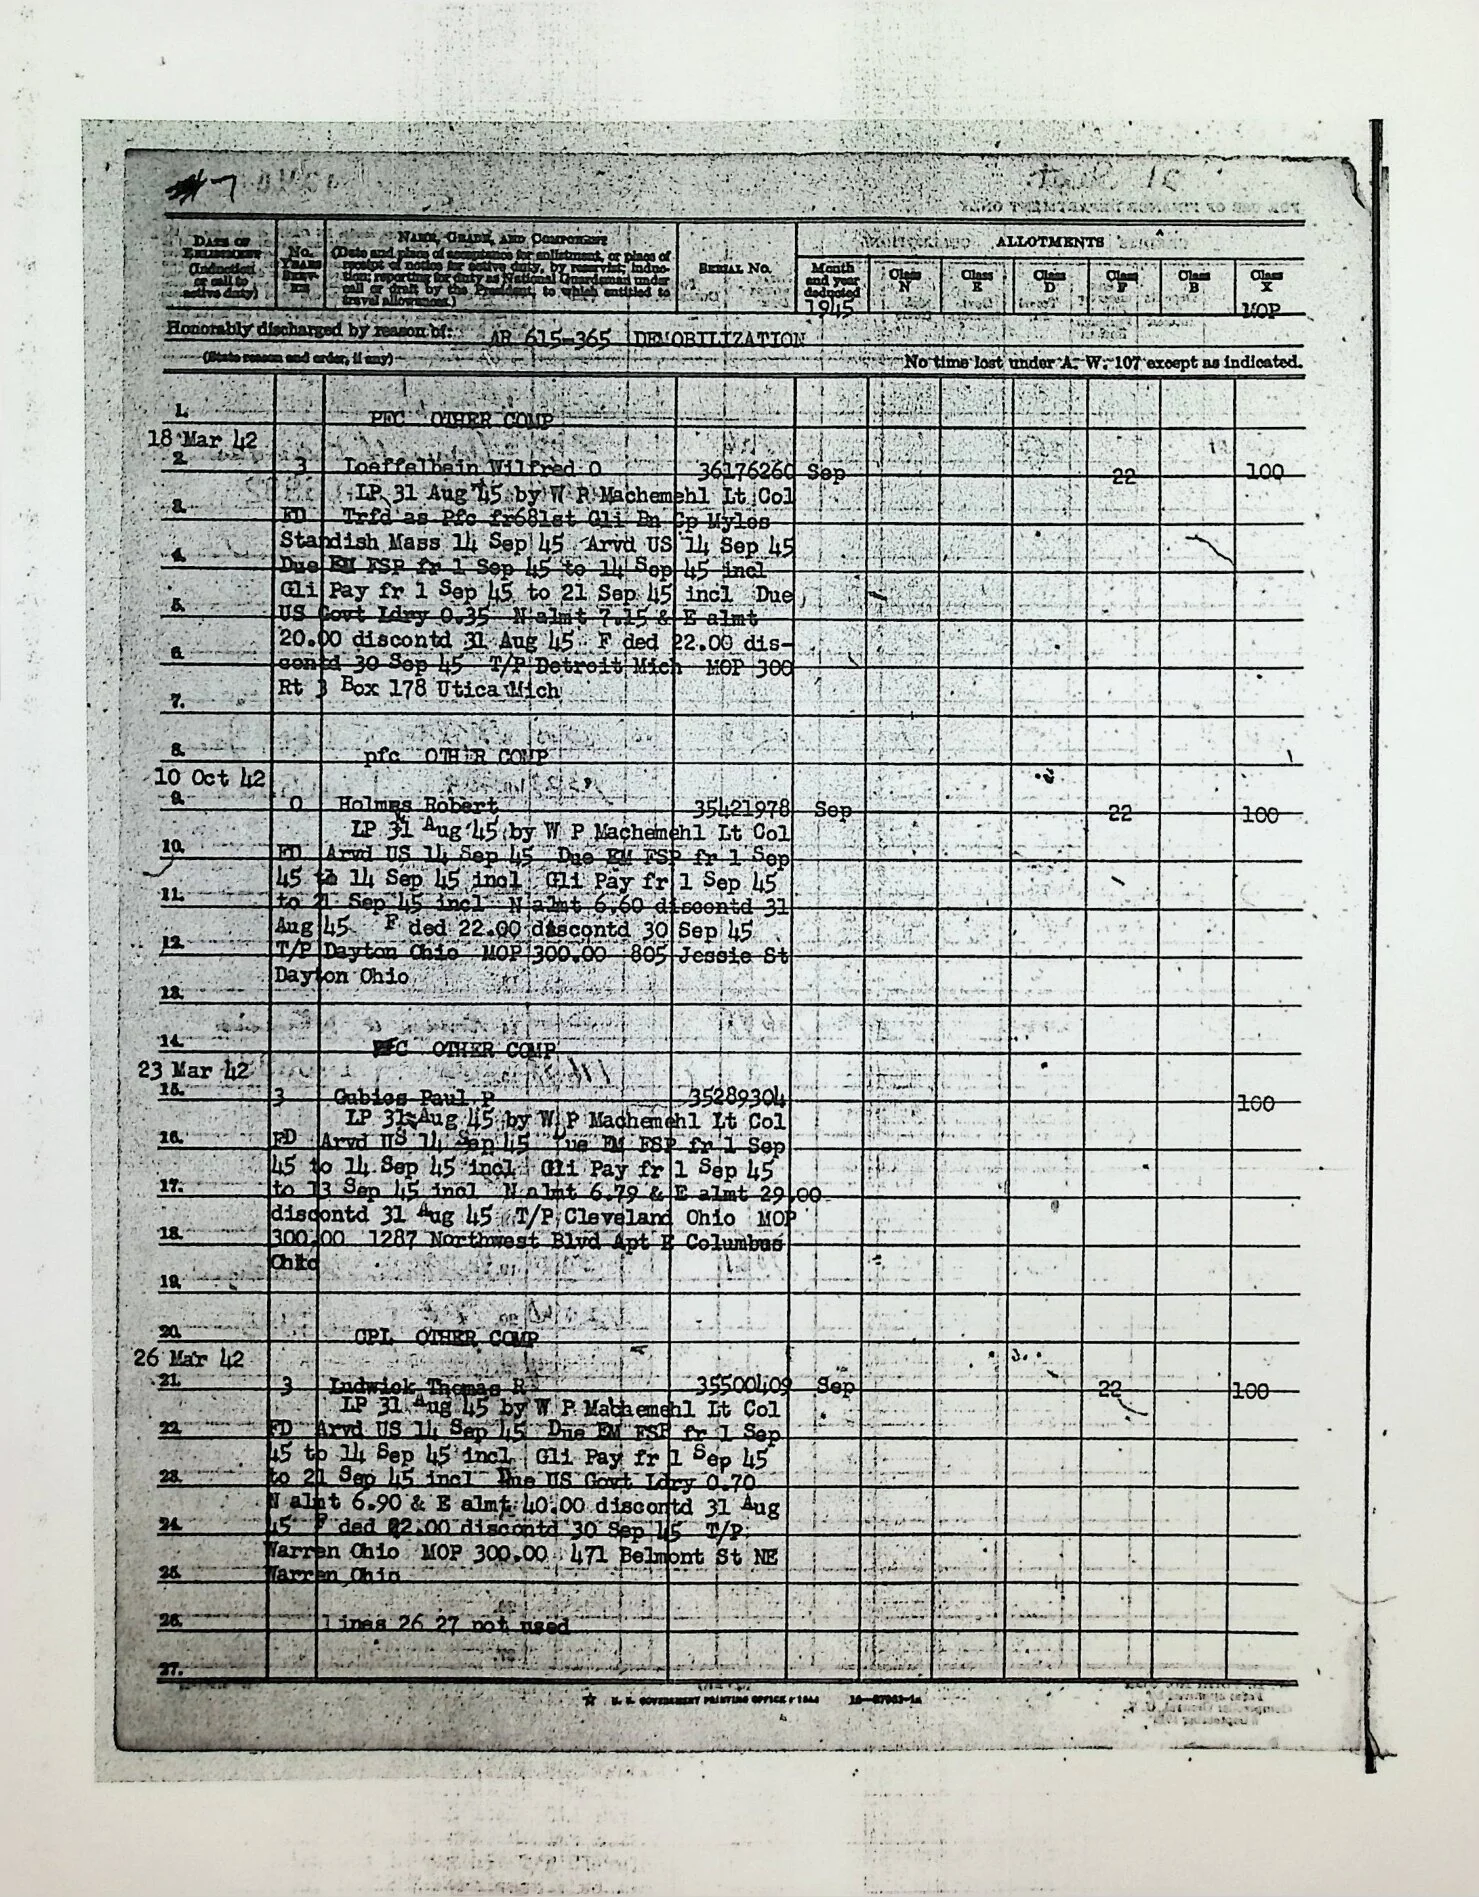 #7
DATE OF ENLISTMENT (Induction or call to active duty)
No. YEARS SERVICE
NAME, GRADE, AND COMPONENT
(Date and place of acceptance for enlistment, or place of receipt of notice for active duty, by reservist; induction; reporting for duty as National Guardsman under call or draft by the President, to which entitled to travel allowances.)
SERIAL NO.
ALLOTMENTS
Month and year deducted
1945
Class N
Class E
Class D
Class F
Class B
Class X
MOP
Honorably discharged by reason of: AR 615-365 DEMOBILIZATION
(State reason and order, if any)
No time lost under A. W. 107 except as indicated.
1. PFC OTHER COMP
18 Mar 42
2. 3 Loeffelbein Wilfred O 36176260 Sep 22 100
LP 31 Aug 45 by W P Machemehl Lt Col
3. FD Trfd as Pfc fr 681st Gli Bn Cp Myles
Standish Mass 14 Sep 45 Arvd US 14 Sep 45
4. Due EM FSP fr 1 Sep 45 to 14 Sep 45 incl
Gli Pay fr 1 Sep 45 to 21 Sep 45 incl Due
5. US Govt Ldry 0.35 N almt 7.15 & E almt
20.00 discontd 31 Aug 45 F ded 22.00 dis-
6. contd 30 Sep 45 T/P Detroit Mich MOP 300
Rt 3 Box 178 Utica Mich
7.
8. pfc OTHER COMP
10 Oct 42
9. 0 Holmes Robert 35421978 Sep 22 100
LP 31 Aug 45 by W P Machemehl Lt Col
10. FD Arvd US 14 Sep 45 Due EM FSP fr 1 Sep
45 to 14 Sep 45 incl Gli Pay fr 1 Sep 45
11. to 21 Sep 45 incl N almt 6.60 discontd 31
Aug 45 F ded 22.00 discontd 30 Sep 45
12. T/P Dayton Ohio MOP 300.00 805 Jessie St
Dayton Ohio
13.
14. PFC OTHER COMP
23 Mar 42
15. 3 Gubics Paul P 35289304 100
LP 31 Aug 45 by W P Machemehl Lt Col
16. FD Arvd US 14 Sep 45 Due EM FSP fr 1 Sep
45 to 14 Sep 45 incl Gli Pay fr 1 Sep 45
17. to 13 Sep 45 incl N almt 6.79 & E almt 29.00
discontd 31 Aug 45 T/P Cleveland Ohio MOP
18. 300.00 1287 Northwest Blvd Apt E Columbus
Ohio
19.
20. CPL OTHER COMP
26 Mar 42
21. 3 Ludwick Thomas R 35500409 Sep 22 100
LP 31 Aug 45 by W P Machemehl Lt Col
22. FD Arvd US 14 Sep 45 Due EM FSP fr 1 Sep
45 to 14 Sep 45 incl Gli Pay fr 1 Sep 45
23. to 21 Sep 45 incl Due US Govt Ldry 0.70
N almt 6.90 & E almt 40.00 discontd 31 Aug
24. 45 F ded 22.00 discontd 30 Sep 45 T/P
Warren Ohio MOP 300.00 471 Belmont St NE
25. Warren Ohio
26. Lines 26 27 not used
27.
☆ U. S. GOVERNMENT PRINTING OFFICE : 1944